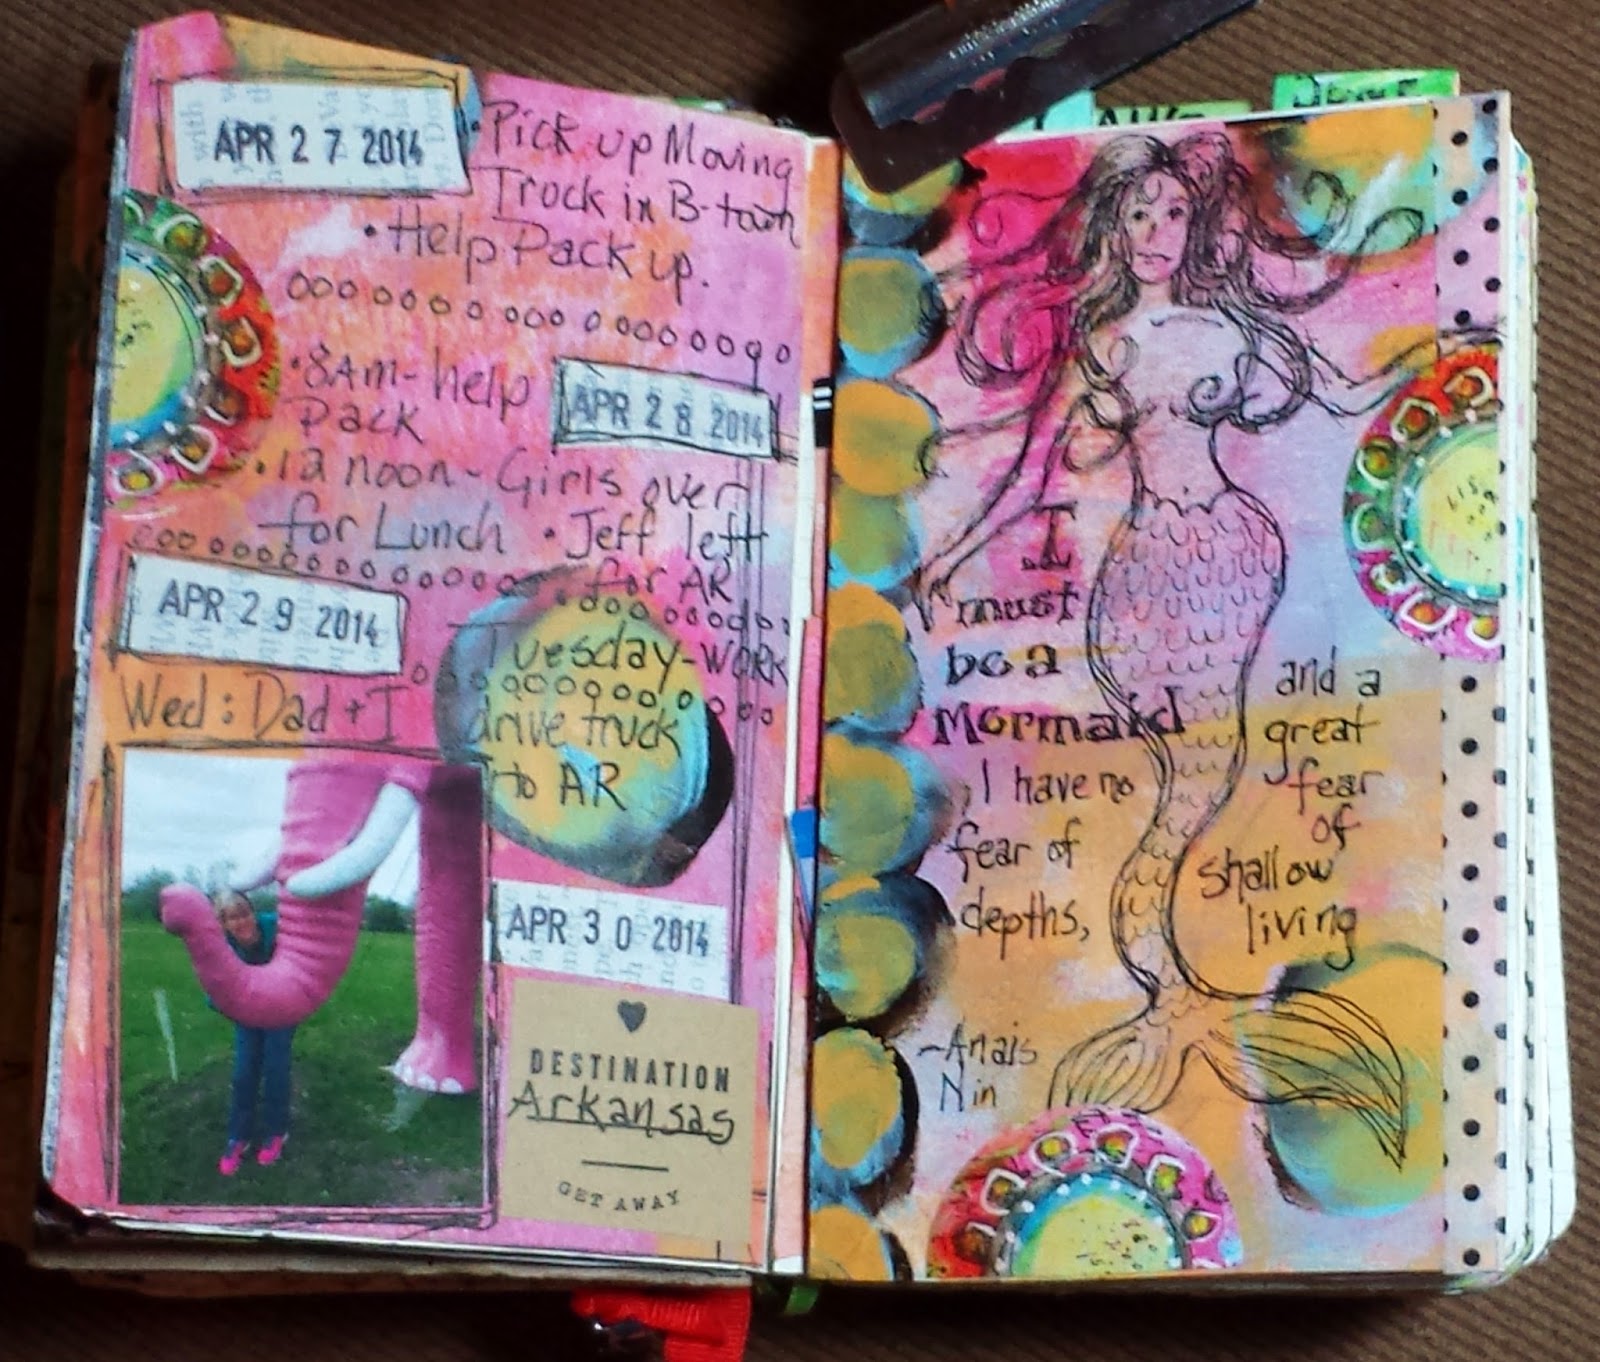 APR 27 2014
• Pick up Moving
Truck in B-town
• Help Pack up.
• 8Am- help
Pack
APR 28 2014
• 12 noon - Girls over
for Lunch • Jeff left
for AR
APR 29 2014
Tuesday-WORK
Wed: Dad + I
drive truck
to AR
APR 30 2014
DESTINATION
Arkansas
GET AWAY
I
must
be a
Mermaid
I have no
fear of
depths,
and a
great
fear
of
shallow
living
-Anais
Nin